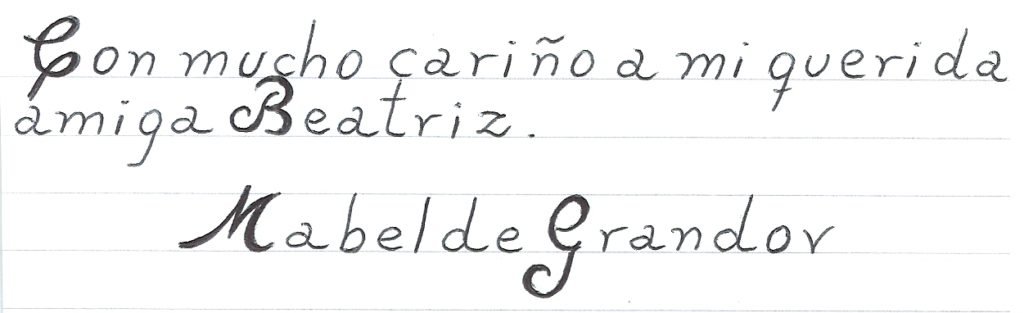 Con mucho cariño a mi querida
amiga Beatriz.
Mabel de Grandov